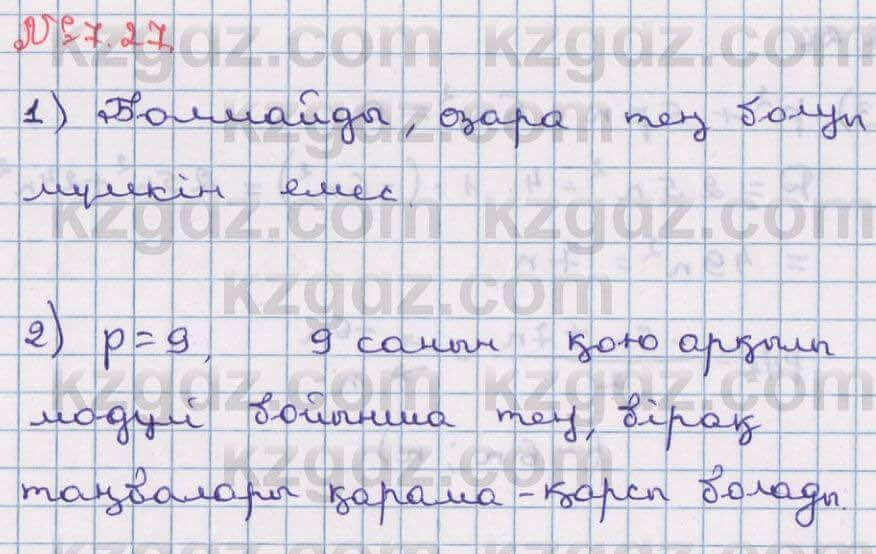 № 7.27.
1) Болмайды, өзара тең болуы
мүмкін емес.
2) p = 9, 9 санын қою арқылы
модулі бойынша тең, бірақ
таңбалары қарама-қарсы болады.
kzgdz.com